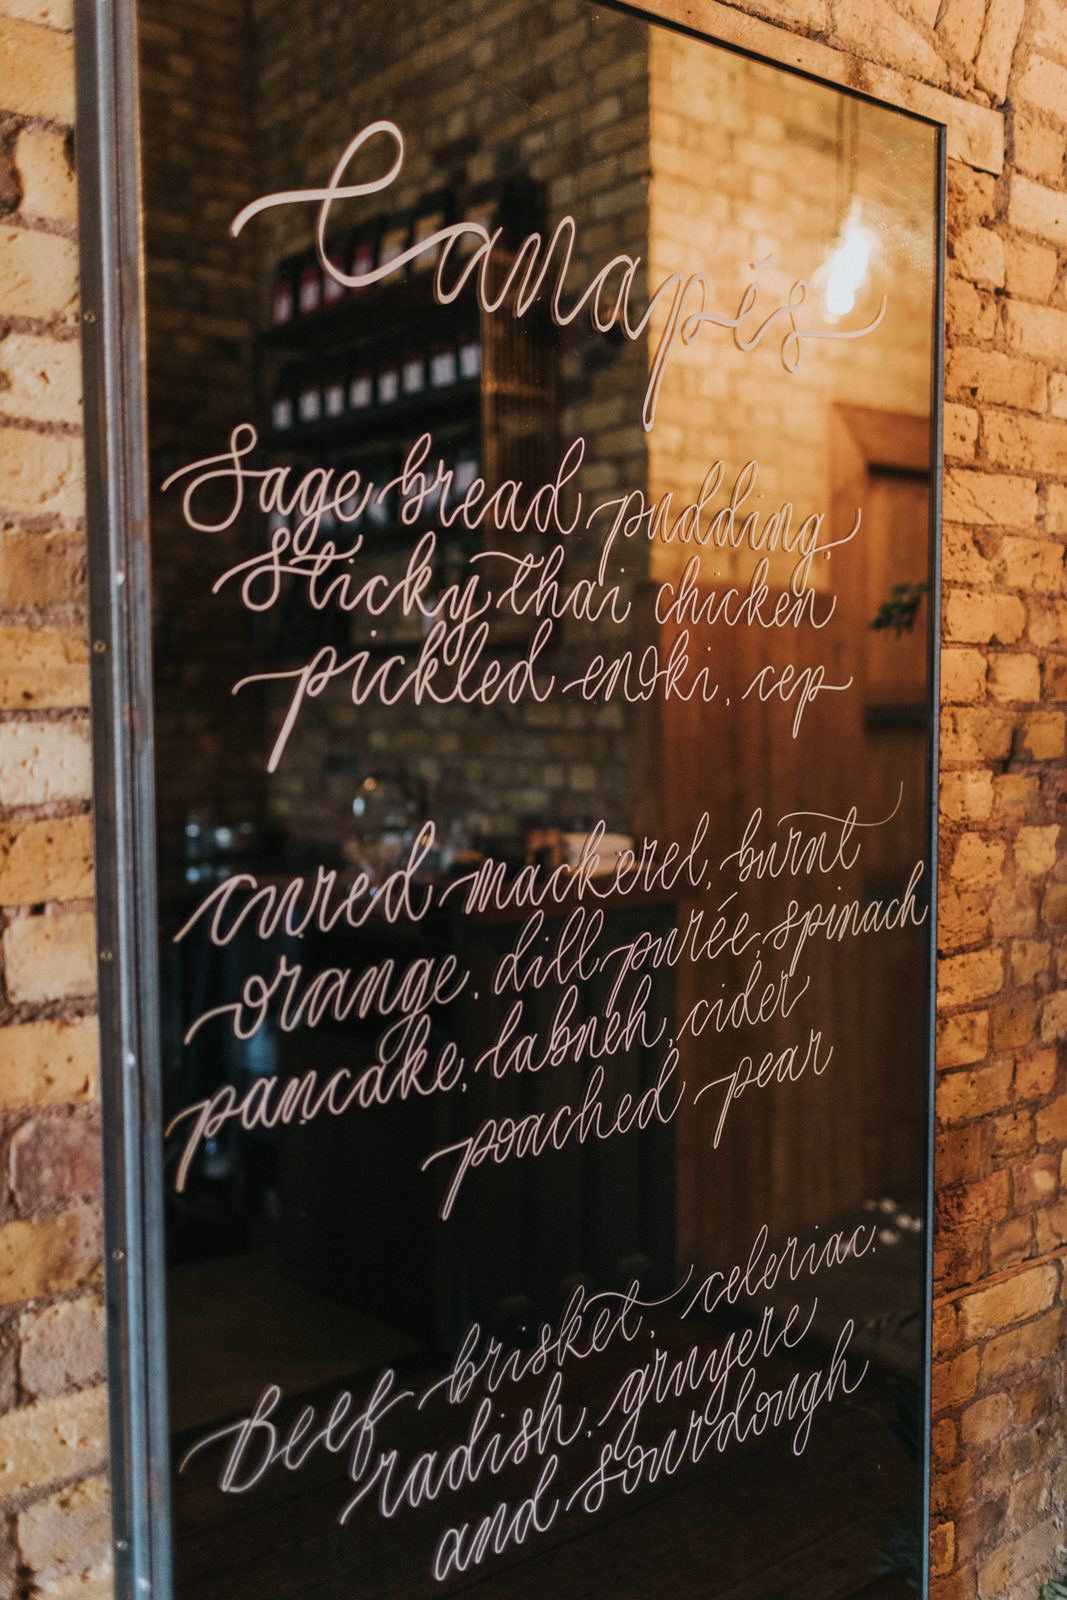 Canapés
Sage bread pudding,
Sticky thai chicken
pickled enoki, cep
cured mackerel, burnt
orange, dill purée, spinach
pancake, labneh, cider
poached pear
Beef brisket, celeriac,
radish, gruyere
and sourdough